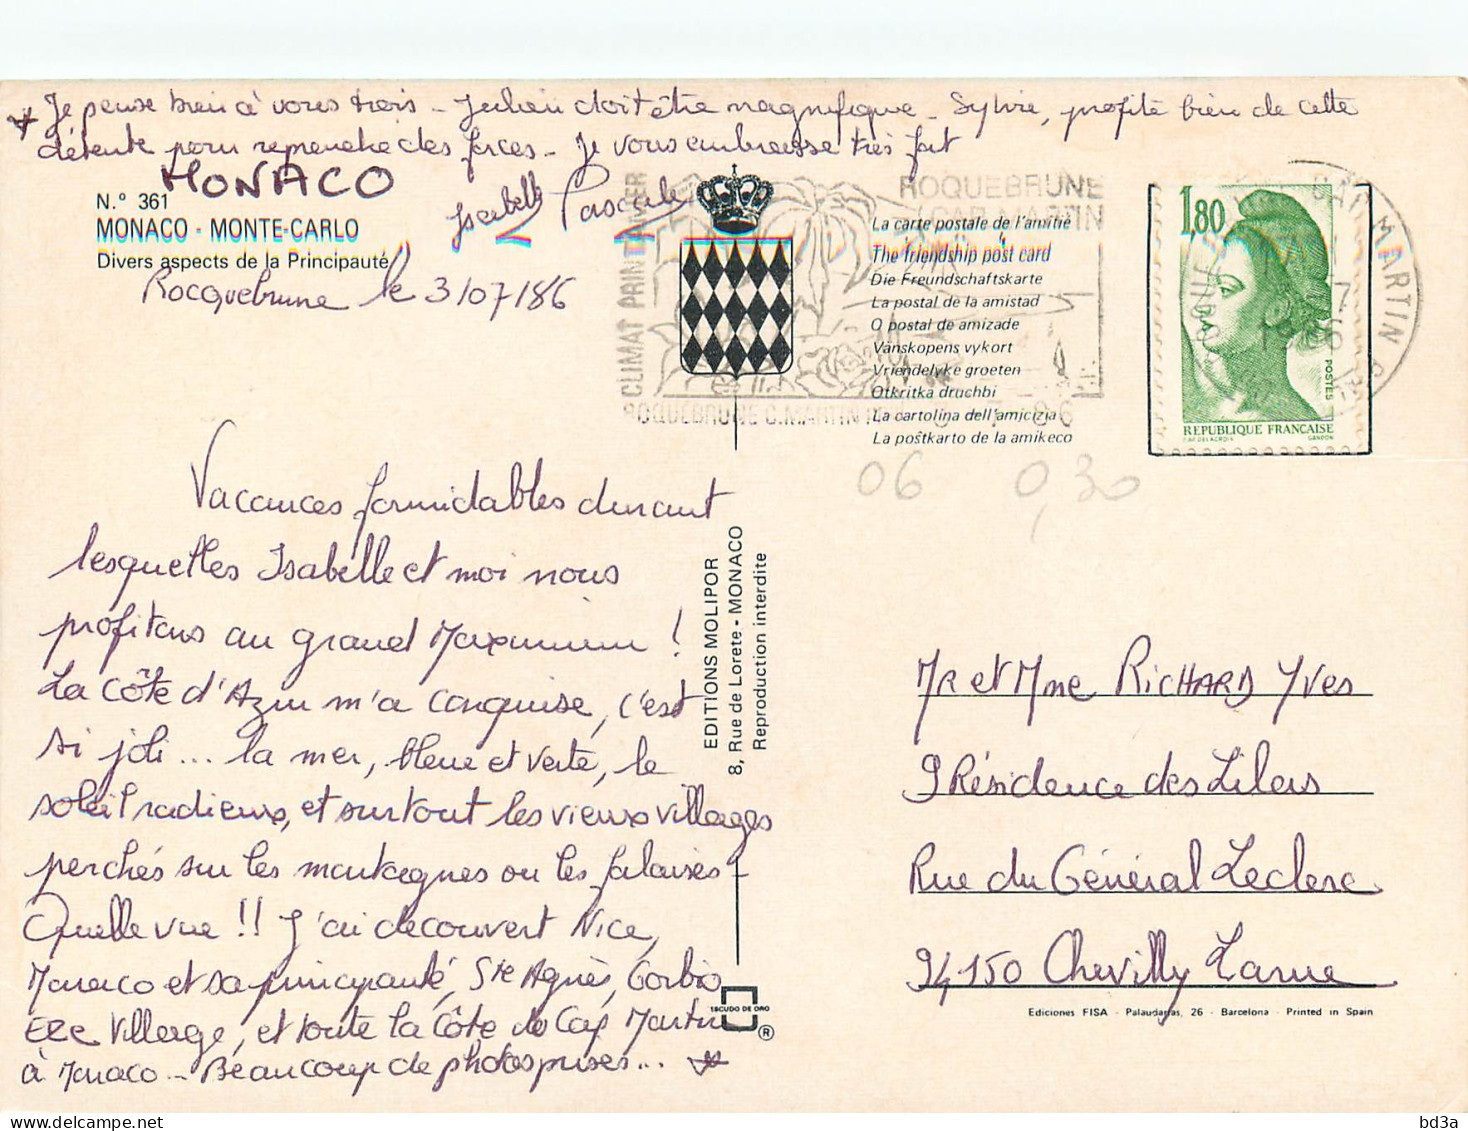 * Je pense bien à vous trois - Julien doit être magnifique - Sylvie, profite bien de cette
détente pour reprendre des forces - Je vous embrasse très fort
MONACO
Isabelle Pascale
N.º 361
MONACO - MONTE-CARLO
Divers aspects de la Principauté
Rocquebrune le 3/07/86
Vacances formidables durant
lesquelles Isabelle et moi nous
profitons au grand Maximum !
La Côte d'Azur m'a conquise, c'est
si joli... la mer, bleue et verte, le
soleil radieux, et surtout les vieux villages
perchés sur les montagnes ou les falaises -
Quelle vue !! J'ai découvert Nice,
Monaco et sa principauté, Ste Agnès, Gorbio
EZE Village, et toute la Côte de Cap Martin
à Monaco - Beaucoup de photos prises... *
CLIMAT PRINTANIER
ROQUEBRUNE
CAP MARTIN
ROQUEBRUNE C. MARTIN
La carte postale de l'amitié
The friendship post card
Die Freundschaftskarte
La postal de la amistad
O postal de amizade
Vänskopens vykort
Vriendelyke groeten
Otkritka druchbi
La cartolina dell'amicizia
La poŝtkarto de la amikeco
1,80
POSTES
REPUBLIQUE FRANÇAISE
D'AP. DELACROIX GANDON
CAP MARTIN
06 0,30
EDITIONS MOLIPOR
8, Rue de Lorete - MONACO
Reproduction interdite
Mr et Mme RICHARD Yves
9 Résidence des Lilas
Rue du Général Leclerc
94150 Chevilly Larue
ESCUDO DE ORO
®
Ediciones FISA - Palaudarias, 26 - Barcelona - Printed in Spain
bd3a